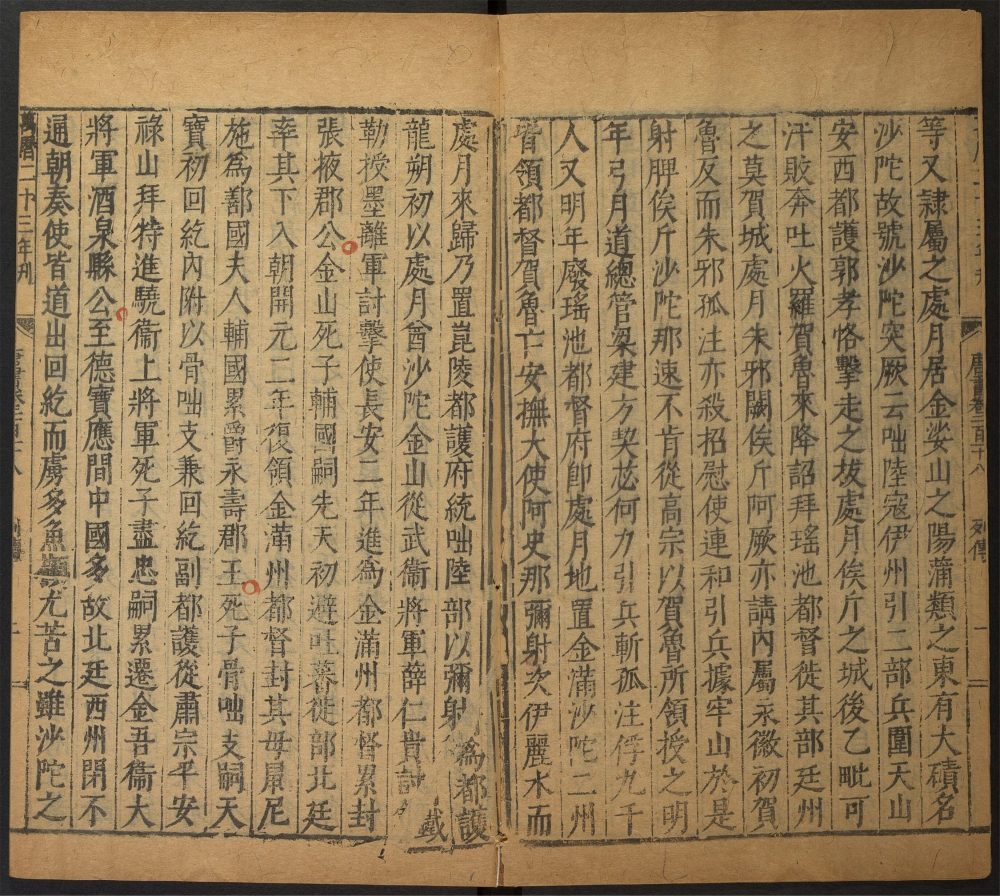 等又隷屬之處月居金娑山之陽蒲類之東有大磧名
沙陀故號沙陀突厥云咄陸寇伊州引二部兵圍天山
安西都護郭孝恪擊走之拔處月俟斤之城後乙毗可
汗敗奔吐火羅賀魯來降詔拜瑤池都督徙其部廷州
之莫賀城處月朱邪闕俟斤阿厥亦請內屬永徽初賀
魯反而朱邪孤注亦殺招慰使連和引兵據牢山於是
射脾俟斤沙陀那速不肯從高宗以賀魯所領授之明
年弓月道總管梁建方契苾何力引兵斬孤注俘九千
人又明年廢瑤池都督府卽處月地置金滿沙陀二州
皆領都督賀魯亡安撫大使阿史那彌射次伊麗水而
處月來歸乃置崑陵都護府統咄陸部以彌射爲都護
龍朔初以處月酋沙陀金山從武衞將軍薛仁貴討鐵
勒授墨離軍討擊使長安二年進爲金滿州都督累封
張掖郡公金山死子輔國嗣先天初避吐蕃徙部北廷
率其下入朝開元二年復領金滿州都督封其母鼠尼
施爲鄯國夫人輔國累爵永壽郡王死子骨咄支嗣天
寶初回紇內附以骨咄支兼回紇副都護從肅宗平安
祿山拜特進驍衞上將軍死子盡忠嗣累遷金吾衞大
將軍酒泉縣公至德寶應間中國多故北廷西州閉不
通朝奏使皆道出回紇而虜多魚尤苦之雖沙陀之
萬曆二十三年刊